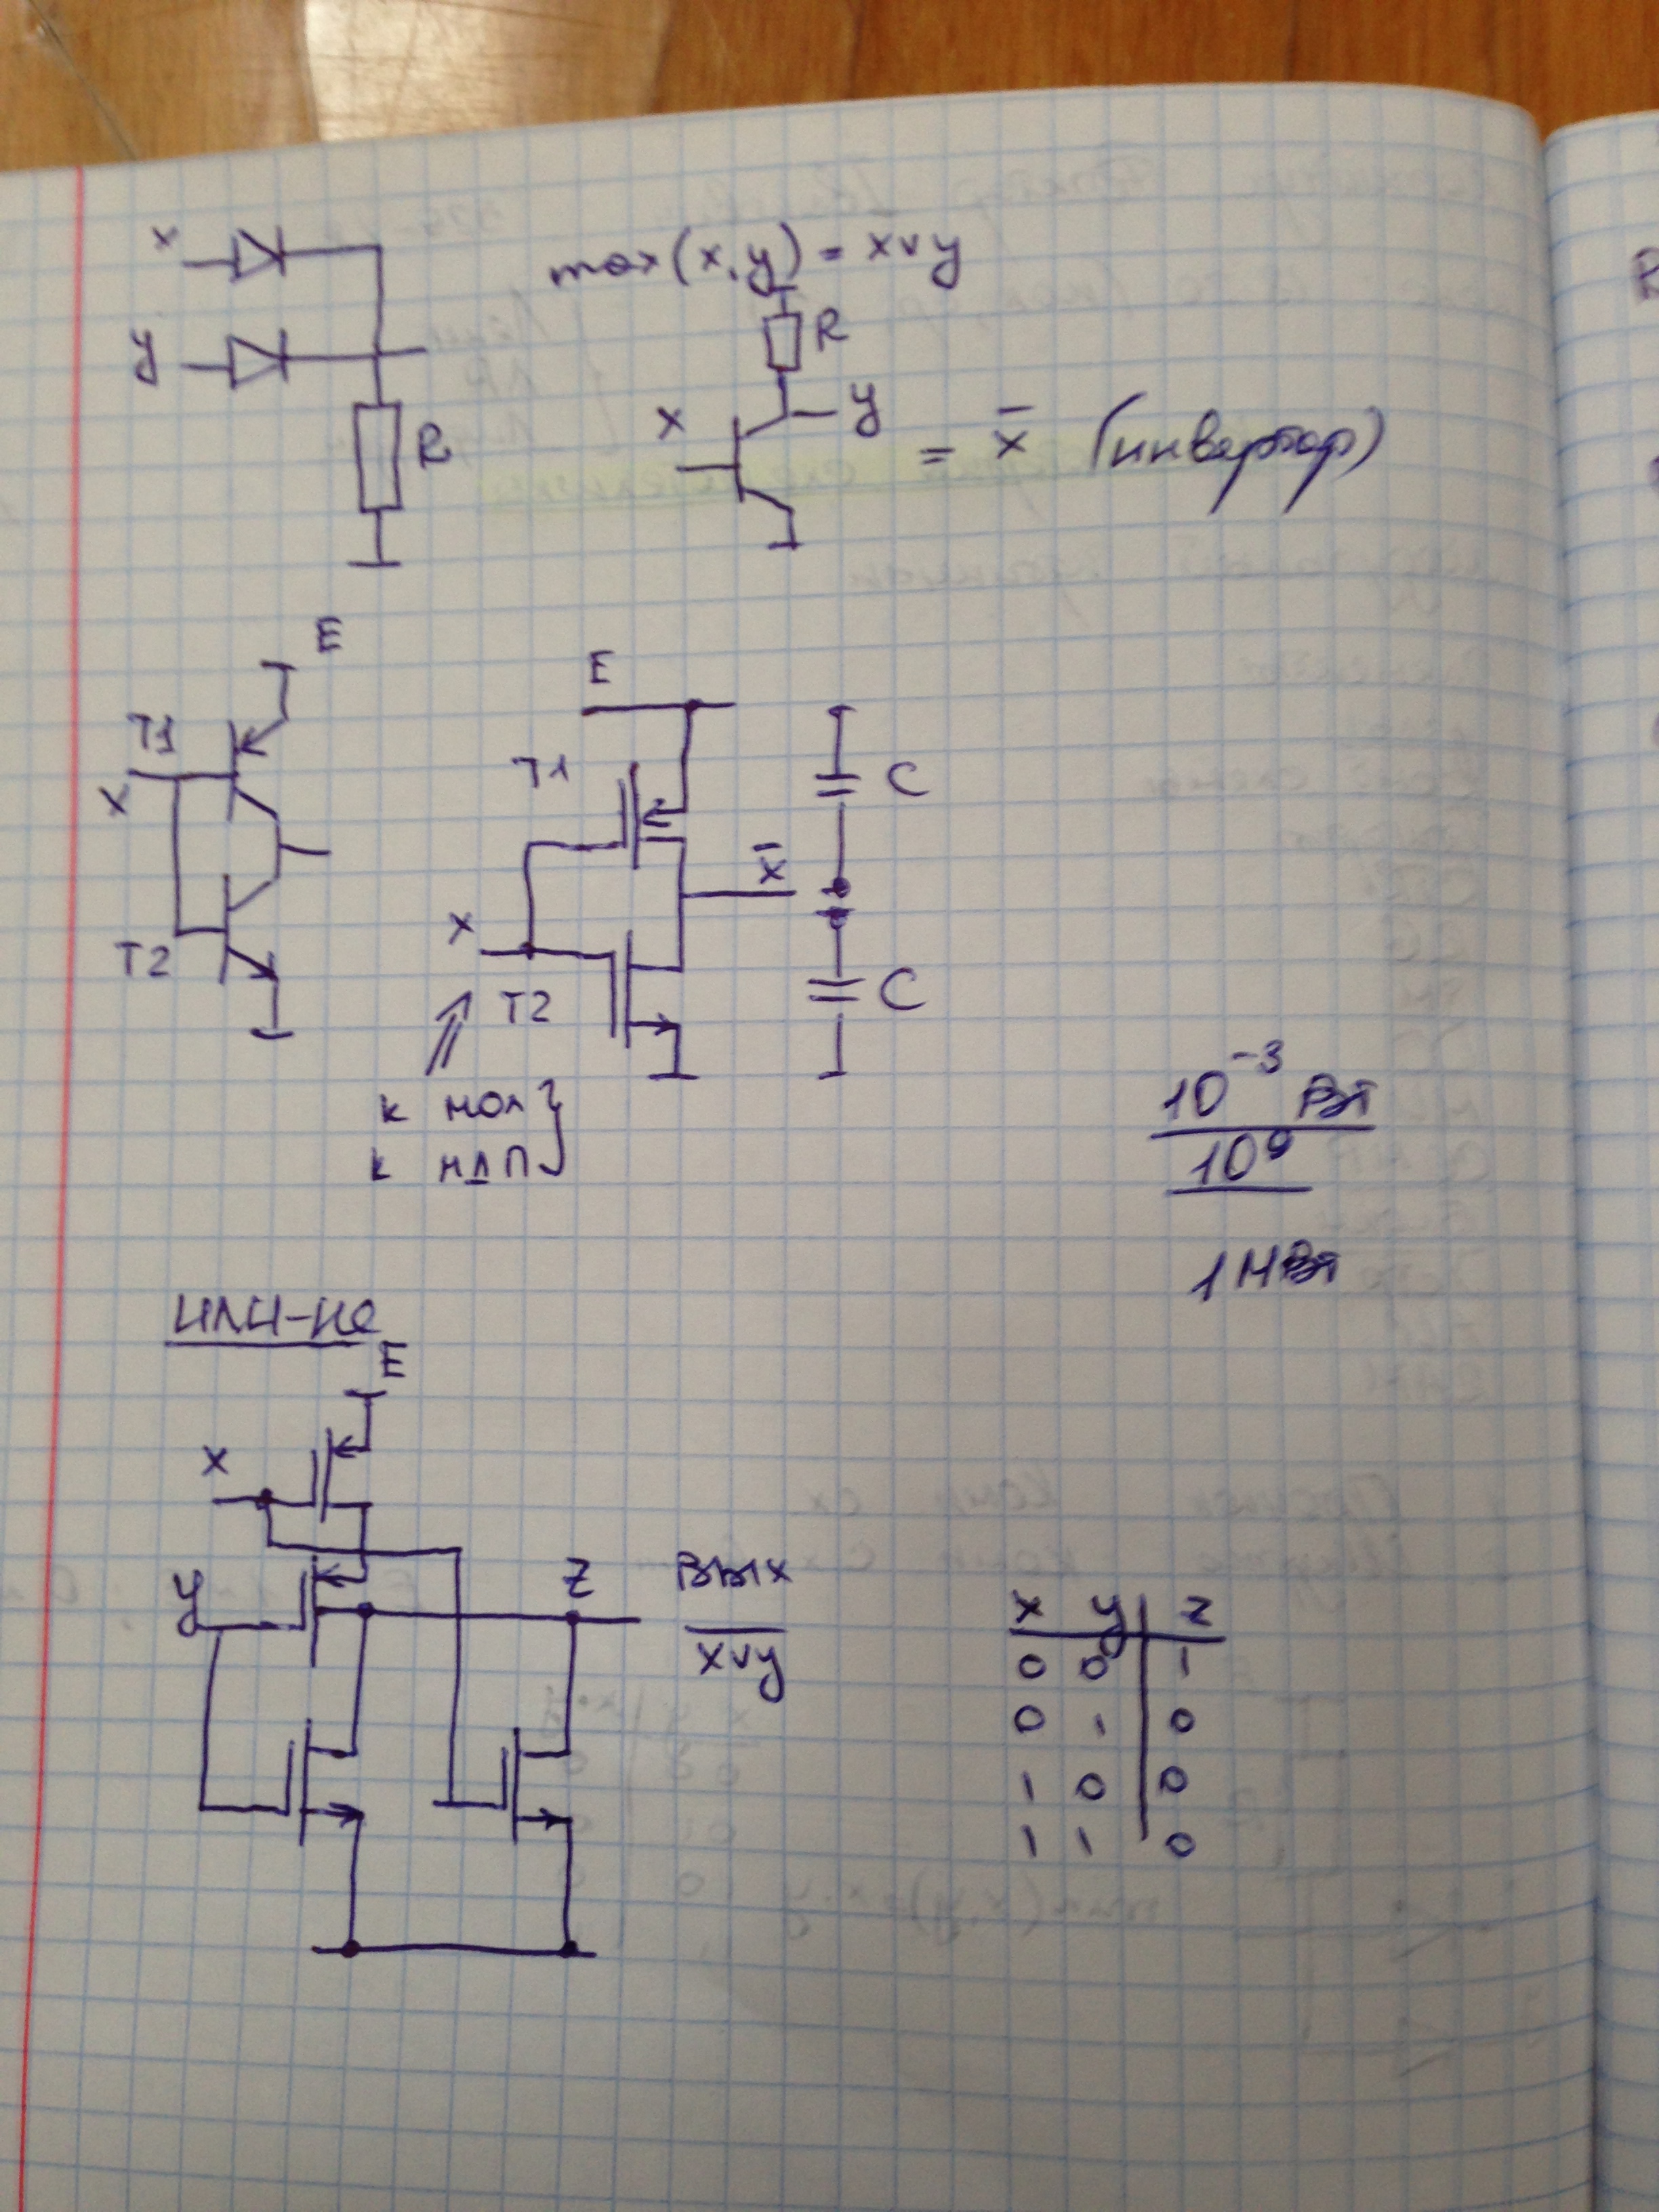 x
max(x,y) = x∨y
y
R
R
x
y
= x̄ (инвертор)
E
T1
x
T2
E
T1
C
x̄
x
T2
C
к моп }
к мдп }
10⁻³ Вт
10⁹
1 МВт
ИЛИ-НЕ
E
x
y
z
Вых
x̅∨̅y̅
x y | z
0 0 | 1
0 1 | 0
1 0 | 0
1 1 | 0